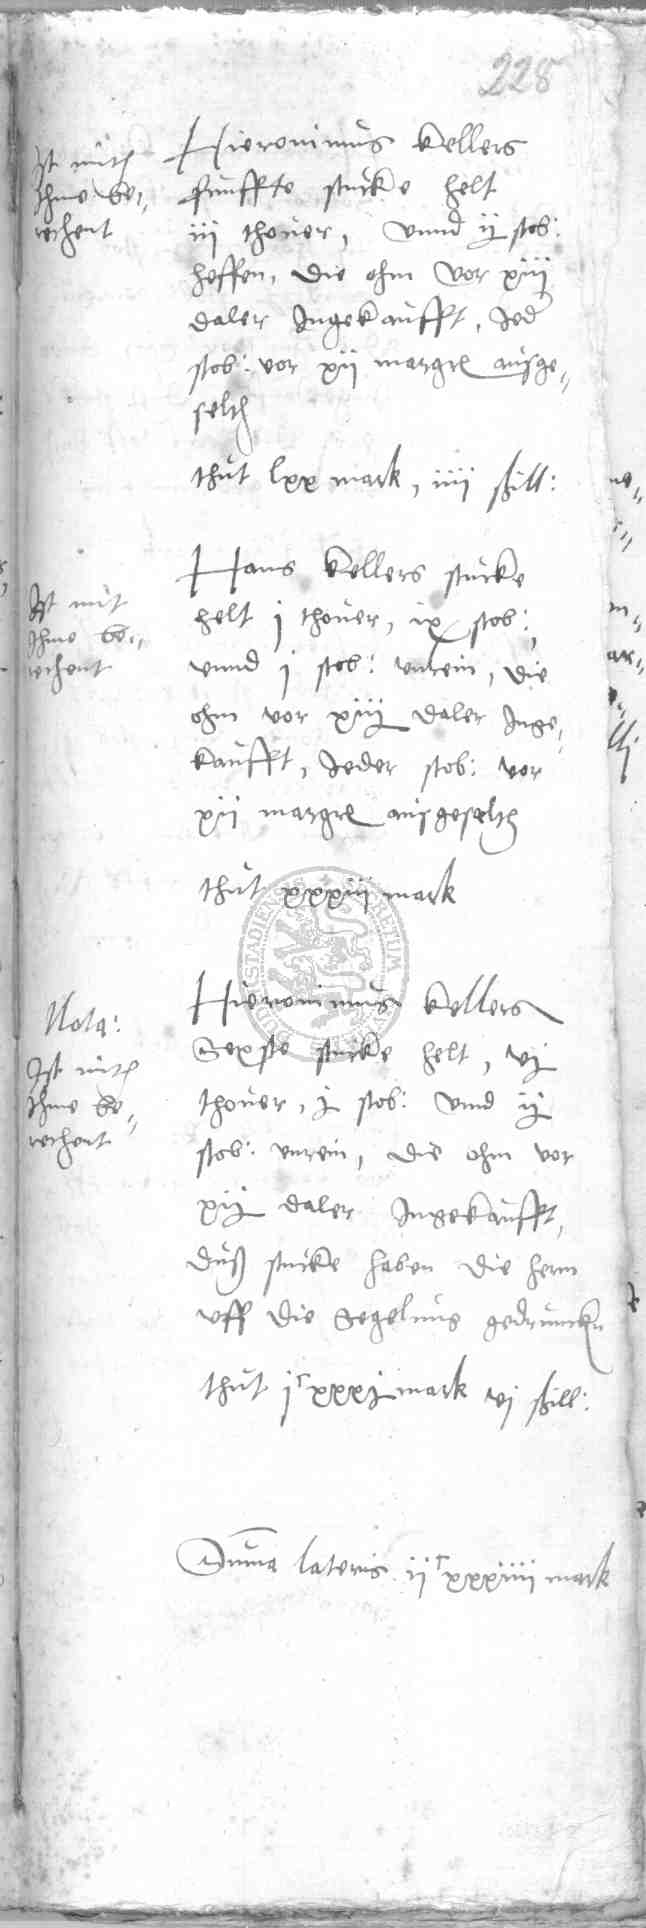 228
Ist mith
Ihme be-
rechent
Hieronimus Kellers
funffte stucke helt
iij thouer, vnnd ij stob:
heffen, die ohm vor xiij
daler Ingekaufft, Jed
stob: vor xij margel ausge-
selth
thut lxx mark, iiij ßill:
Ist mit
Ihme be-
rechent
Hans Kellers stucke
helt j thouer, ix stob:,
vnnd j stob: vnrein, die
ohm vor xiij daler Inge-
kaufft, Jeder stob: vor
xij margel ausgeselth
thut xxxiij mark
BUDINSTADIENSE
Nota:
Ist mith
Ihme be-
rechent
Hieronimus Kellers
Sexste stucke helt, vj
thouer, j stob: vnnd ij
stob: vnrein, die ohm vor
xij daler Ingekaufft,
duß stucke haben die hern
vff die Segelnus gedruncken
thut jc xxxj mark vj ßill:
Summa lateris ijc xxxiiij mark